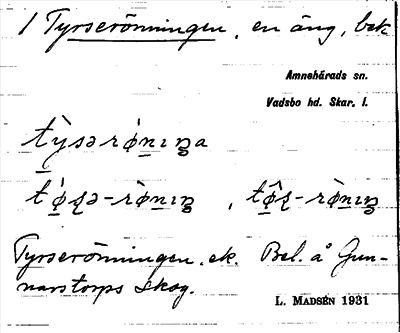 1 Tyrserönningen, en äng, bek
Amnehärads sn.
Vadsbo hd. Skar. l.
tỳsərǿnɪŋa
tǿʂə-rǿnɪŋ, tø̂ʂ-rǿnɪŋ
Tyrserönningen, ek. Bel. å Gun-
narstorps skog.
L. MADSÉN 1931